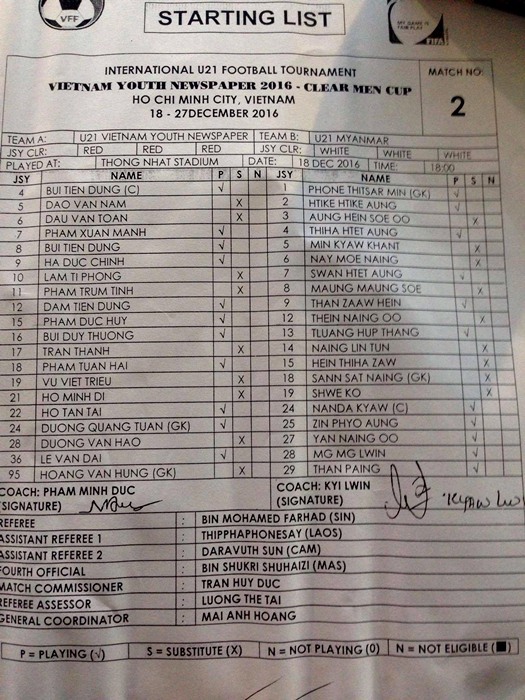 VFF
STARTING LIST
MY GAME IS FAIR PLAY
FIFA
INTERNATIONAL U21 FOOTBALL TOURNAMENT
VIETNAM YOUTH NEWSPAPER 2016 - CLEAR MEN CUP
HO CHI MINH CITY, VIETNAM
18 - 27DECEMBER 2016
MATCH NO:
2
TEAM A: U21 VIETNAM YOUTH NEWSPAPER TEAM B: U21 MYANMAR
JSY CLR: RED RED RED JSY CLR: WHITE WHITE WHITE
PLAYED AT: THONG NHAT STADIUM DATE: 18 DEC 2016 TIME: 18:00
JSY NAME P S N JSY NAME P S N
4 BUI TIEN DUNG (C) √ 1 PHONE THITSAR MIN (GK) √
5 DAO VAN NAM X 2 HTIKE HTIKE AUNG √
6 DAU VAN TOAN X 3 AUNG HEIN SOE OO X
7 PHAM XUAN MANH √ 4 THIHA HTET AUNG √
8 BUI TIEN DUNG √ 5 MIN KYAW KHANT X
9 HA DUC CHINH √ 6 NAY MOE NAING X
10 LAM TI PHONG X 7 SWAN HTET AUNG √
11 PHAM TRUM TINH X 8 MAUNG MAUNG SOE X
12 DAM TIEN DUNG √ 9 THAN ZAAW HEIN √
15 PHAM DUC HUY √ 12 THEIN NAING OO X
16 BUI DUY THUONG √ 13 TLUANG HUP THANG √
17 TRAN THANH X 14 NAING LIN TUN X
18 PHAM TUAN HAI √ 15 HEIN THIHA ZAW X
19 VU VIET TRIEU X 18 SANN SAT NAING (GK) X
21 HO MINH DI X 19 SHWE KO X
22 HO TAN TAI √ 24 NANDA KYAW (C) √
24 DUONG QUANG TUAN (GK) √ 25 ZIN PHYO AUNG √
28 DUONG VAN HAO X 27 YAN NAING OO √
36 LE VAN DAI √ 28 MG MG LWIN √
95 HOANG VAN HUNG (GK) X 29 THAN PAING √
COACH: PHAM MINH DUC COACH: KYI LWIN
(SIGNATURE) (SIGNATURE)
REFEREE : BIN MOHAMED FARHAD (SIN)
ASSISTANT REFEREE 1 : THIPPHAPHONESAY (LAOS)
ASSISTANT REFEREE 2 : DARAVUTH SUN (CAM)
FOURTH OFFICIAL : BIN SHUKRI SHUHAIZI (MAS)
MATCH COMMISSIONER : TRAN HUY DUC
REFEREE ASSESSOR : LUONG THE TAI
GENERAL COORDINATOR : MAI ANH HOANG
P = PLAYING (√) S = SUBSTITUTE (X) N = NOT PLAYING (0) N = NOT ELIGIBLE (■)